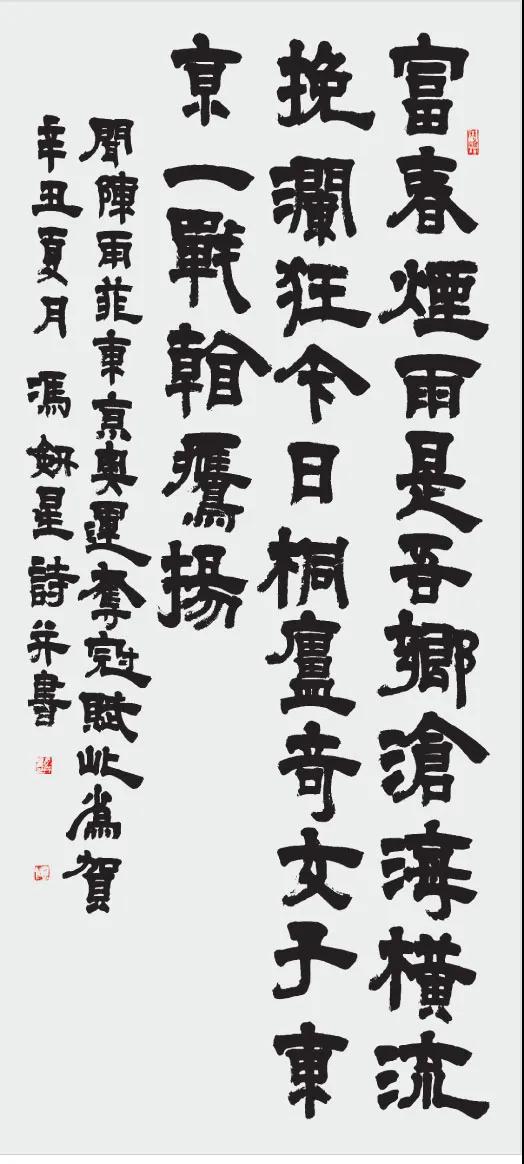 富春煙雨是吾鄉滄海橫流
挽瀾狂今日桐廬奇女子東
京一戰翰鷹揚
聞陳雨菲東京奧運奪冠賦此爲賀
辛丑夏月 馮妍星詩并書